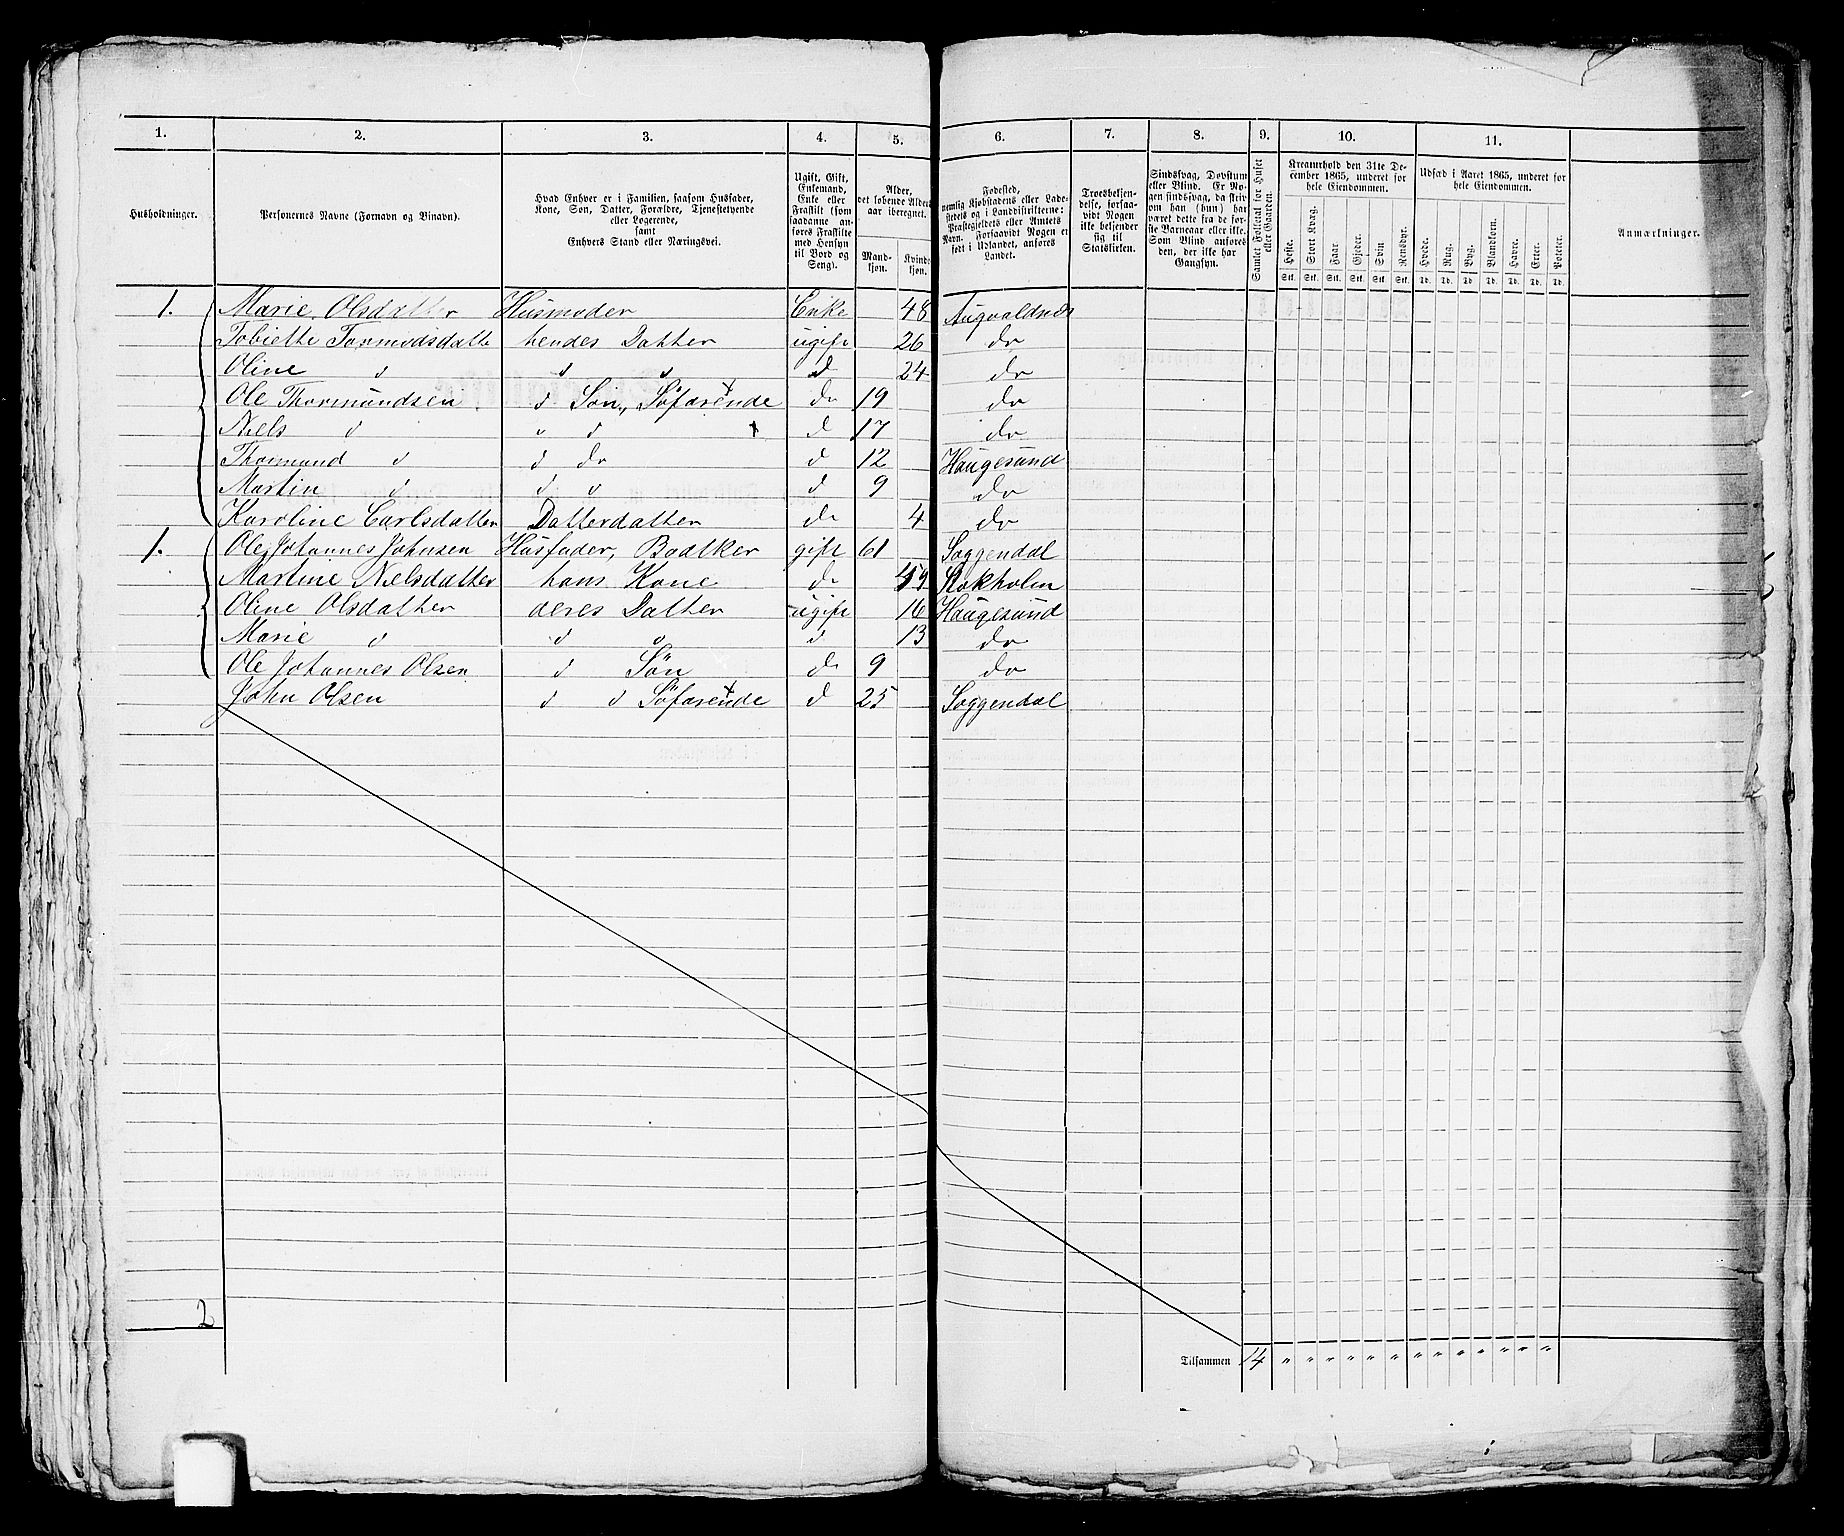 1. 2. 3. 4. 5. 6. 7. 8. 9. 10. 11.
Husholdninger.
Personernes Navne (Fornavn og Binavn).
Hvad Enhver er i Familien, saasom Husfader,
Kone, Søn, Datter, Forældre, Tjenestetyende
eller Logerende,
samt
Enhvers Stand eller Næringsvei.
Ugift, Gift,
Enkemand,
Enke eller
Fraskilt (som
saadanne an-
føres Fraskilte
med Hensyn
til Bord og
Seng).
Alder,
det løbende Alders-
aar iberegnet.
Mand-
kjøn.
Kvinde-
kjøn.
Fødested,
nemlig Kjøbstadens eller Lade-
stedets og i Landdistrikterne:
Præstegjeldets eller Amtets
Navn. Forsaavidt Nogen er
født i Udlandet, anføres
Landet.
Troesbekjen-
delse, forsaa-
vidt Nogen
ikke bekjender
sig til
Statskirken.
Sindssvag, Døvstum
eller Blind. Er No-
gen sindssvag, da skriv
om han (hun) har
været dette fra de før-
ste Barneaar eller ikke.
Som Blind anføres
den, der ikke har
Gangsyn.
Samlet Folketal for Huset
eller Gaarden.
Kreaturhold den 31te De-
cember 1865, underet for
hele Eiendommen.
Heste. Stort Kvæg. Faar. Gjeder. Svin Rensdyr.
Stk. Stk. Stk. Stk. Stk. Stk.
Udsæd i Aaret 1865, underet for
hele Eiendommen.
Hvede. Rug. Byg. Blandkorn. Havre. Erter. Poteter.
Td. Td. Td. Td. Td. Td. Td.
Anmærkninger.
1. Marie Olsdatter Husmoder Enke 48 Augvaldnæs
Tobiette Tormodsdatte hendes Datter ugift 26 do
Oline d d d d 24 do
Ole Thormundsen d Søn, Søfarende do 19 do
Niels d " d d 17 do
Thormund d d do d 12 Haugesund
Martin d d d d 9 do
Karoline Carlsdatter Datterdatter do 4 do
1. Ole Johannes Johnsen Husfader, Bødtker gift 61 Soggendal
Martine Nielsdatter hans Kone do Stokholm
Oline Olsdatter deres Datter ugift 16 Haugesund
Marie d d d d 13 do
Ole Johannes Olsen d Søn do 9 do
John Olsen d d Søfarende d 25 Soggendal
2
Tilsammen 14 " " " " " " " " " " " " "